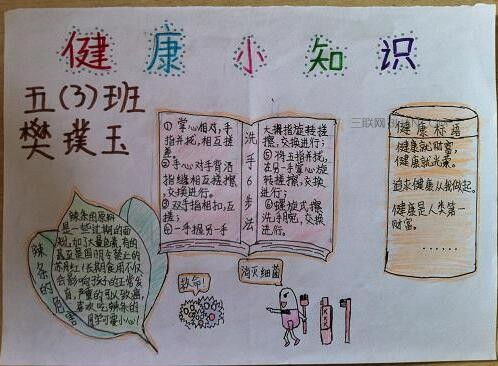 健康小知识
五(3)班
樊璞玉
三联网
洗手6步法
① 掌心相对,手
指并拢,相互搓
擦;
②手心对手背沿
指缝相互搓擦,
交换进行;
③双手指相扣,互
搓;
④一手握另一手
大拇指旋转搓
擦,交换进行;
⑤将五指并拢,
在另一手掌心旋
转搓擦,交换
进行;
⑥螺旋式擦
洗手腕,交换
进行。
健康标语
健康就似财富,
健康就似光荣。
追求健康从我做起。
健康是人类第一
财富。
……
辣条的危害
辣条的原料
是一些过期的面
粉,加了大量色素,有的
甚至是国明令禁止的
苏丹红!长期食用不仅
会影响孩子的正常发
育,严重的可以致癌,
喜欢吃辣条的
同学可要小心!
救命!
消灭细菌